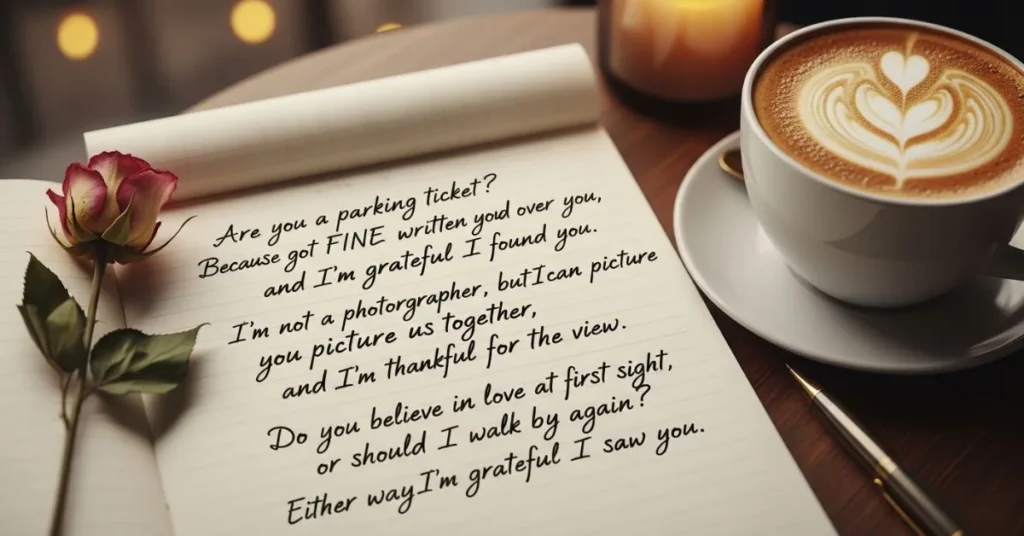 Are you a parking ticket?
Because got FINE written yoıd over you,
and I'm grateful I found you.
I'm not a photorgrapher, but I can picture
you picture us together,
and I'm thankful for the view.
Do you believe in love at first sight,
or should I walk by again?
Either way I'm grateful I saw you.